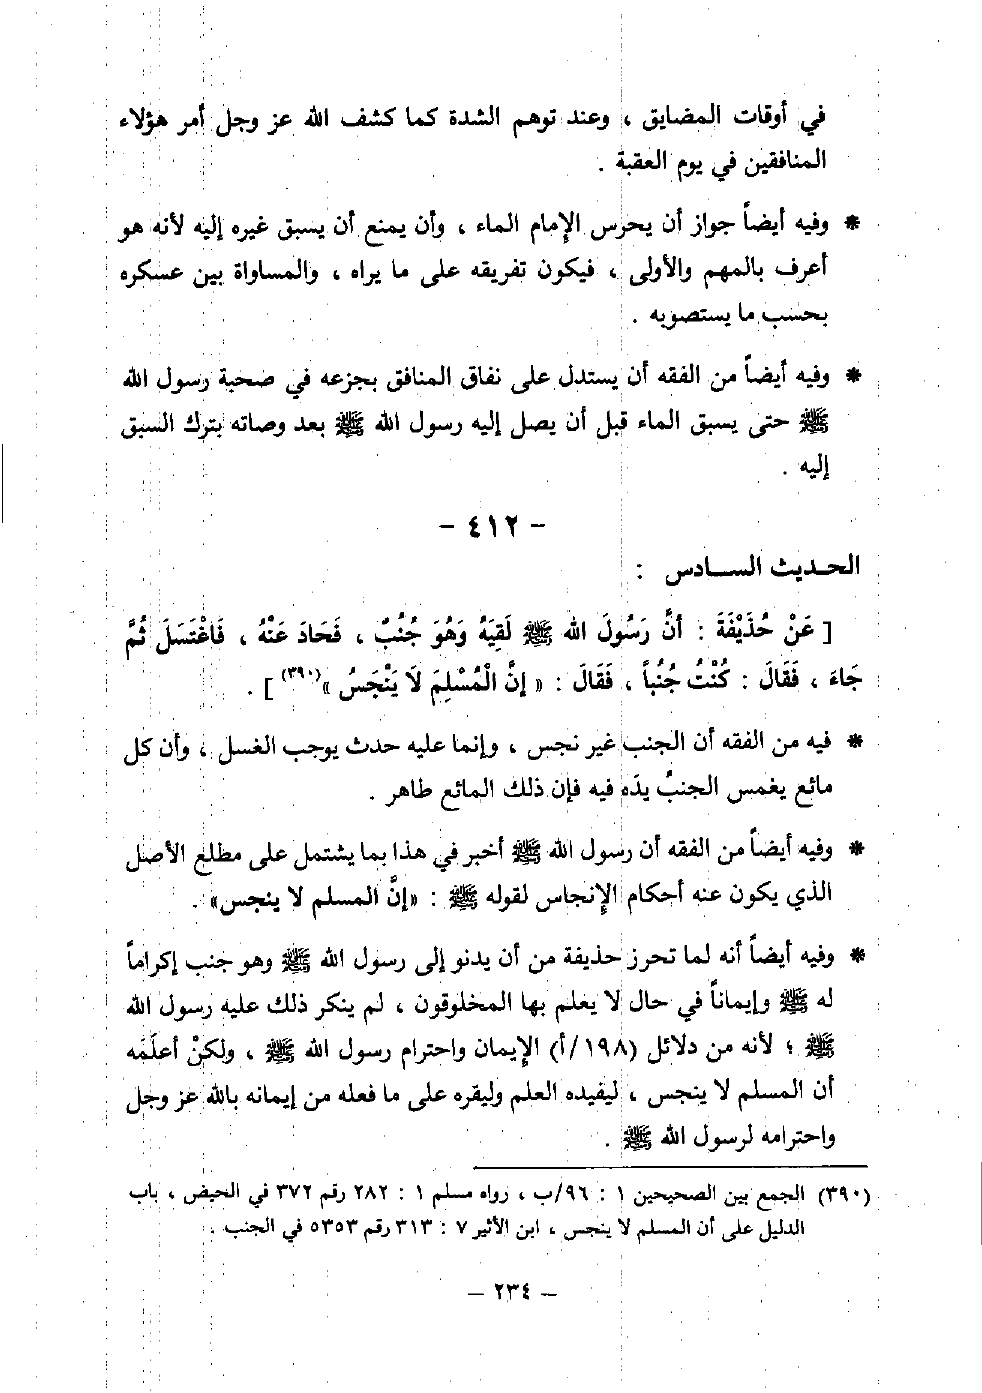 في أوقات المضايق ، وعند توهم الشدة كما كشف الله عز وجل أمر هؤلاء
المنافقين في يوم العقبة .
* وفيه أيضاً جواز أن يحرس الإمام الماء ، وأن يمنع أن يسبق غيره إليه لأنه هو
أعرف بالمهم والأولى ، فيكون تفريقه على ما يراه ، والمساواة بين عسكره
بحسب ما يستصوبه .
* وفيه أيضاً من الفقه أن يستدل على نفاق المنافق بجزعه في صحبة رسول الله
ﷺ حتى يسبق الماء قبل أن يصل إليه رسول الله ﷺ بعد وصاته بترك السبق
إليه .
- ٤١٢ -
الحديث السادس :
[ عَنْ حُذَيْفَةَ : أنَّ رَسُولَ الله ﷺ لَقِيَهُ وَهُوَ جُنُبٌ ، فَحَادَ عَنْهُ ، فَاغْتَسَلَ ثُمَّ
جَاءَ ، فَقَالَ : كُنْتُ جُنُباً ، فَقَالَ : « إنَّ الْمُسْلِمَ لَا يَنْجَسُ »(٣٩٠) ] .
* فيه من الفقه أن الجنب غير نجس ، وإنما عليه حدث يوجب الغسل ، وأن كل
مائع يغمس الجنبُ يدَه فيه فإن ذلك المائع طاهر .
* وفيه أيضاً من الفقه أن رسول الله ﷺ أخبر في هذا بما يشتمل على مطلع الأصل
الذي يكون عنه أحكام الإنجاس لقوله ﷺ : «إنَّ المسلم لا ينجس» .
* وفيه أيضاً أنه لما تحرز حذيفة من أن يدنو إلى رسول الله ﷺ وهو جنب إكراماً
له ﷺ وإيماناً في حال لا يعلم بها المخلوقون ، لم ينكر ذلك عليه رسول الله
ﷺ ؛ لأنه من دلائل (١٩٨/أ) الإيمان واحترام رسول الله ﷺ ، ولكنْ أعلَمَه
أن المسلم لا ينجس ، ليفيده العلم وليقره على ما فعله من إيمانه بالله عز وجل
واحترامه لرسول الله ﷺ .
(٣٩٠) الجمع بين الصحيحين ١ : ٩٦/ب ، رواه مسلم ١ : ٢٨٢ رقم ٣٧٢ في الحيض ، باب
الدليل على أن المسلم لا ينجس ، ابن الأثير ٧ : ٣١٣ رقم ٥٣٥٣ في الجنب .
- ٢٣٤ -